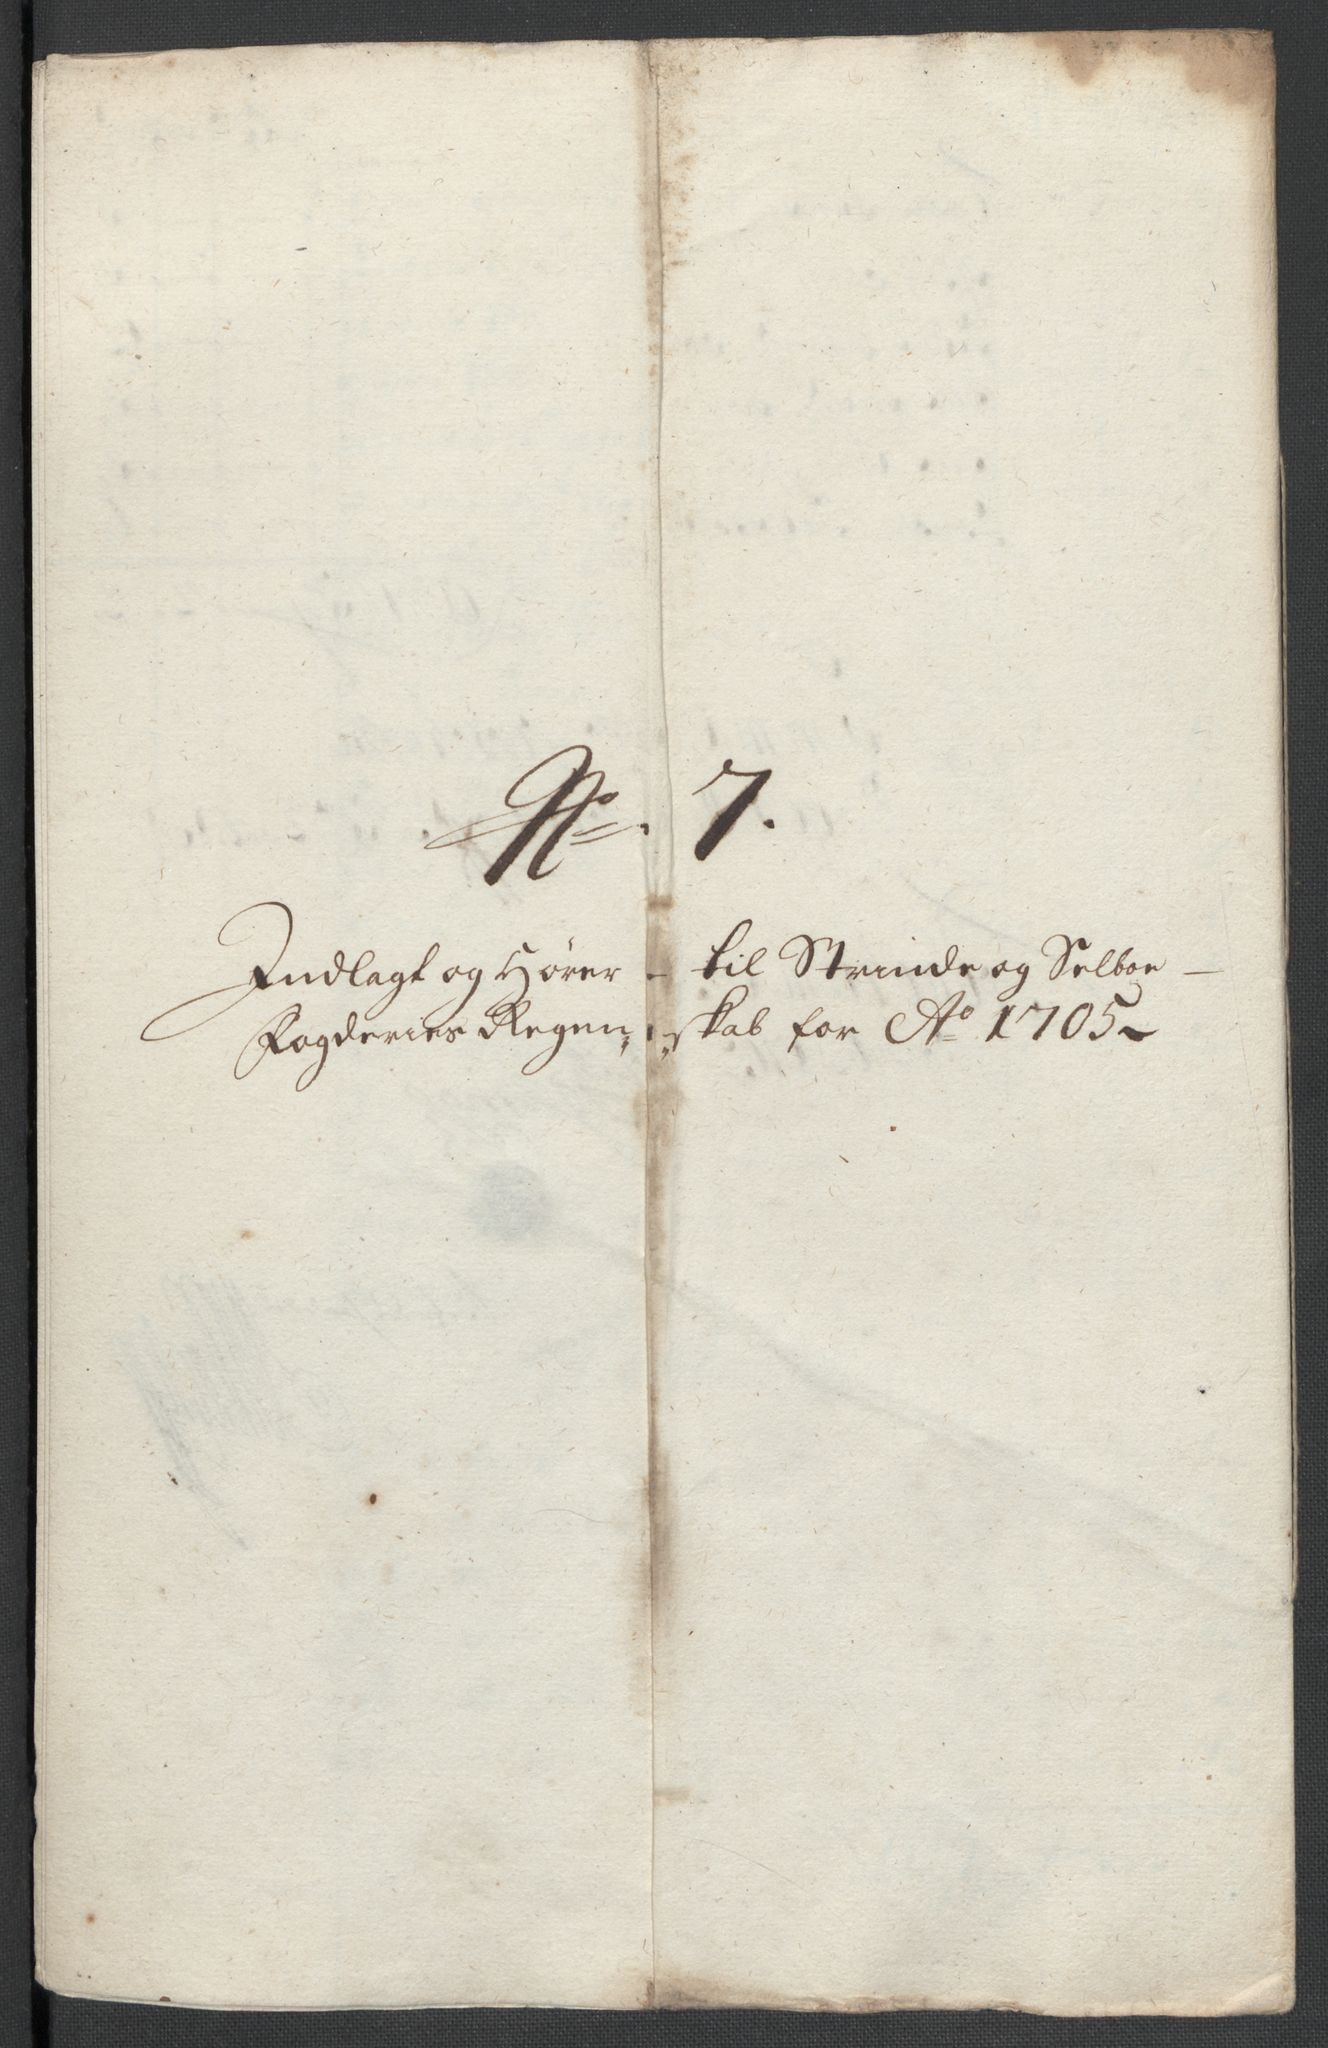 No. 7.
Indlagt og Hörer – til Strinde og Selboe –
Fogderies Regen-skab for Ao 1705